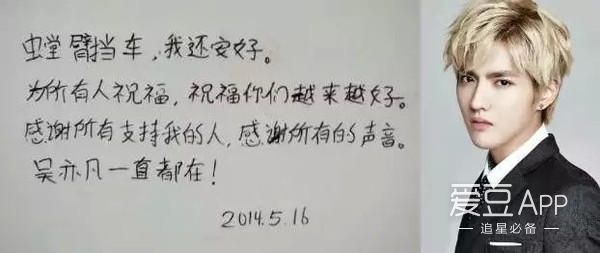 螳臂挡车，我还安好。
为所有人祝福，祝福你们越来越好。
感谢所有支持我的人，感谢所有的声音。
吴亦凡一直都在！
2014.5.16
爱豆APP
追星必备